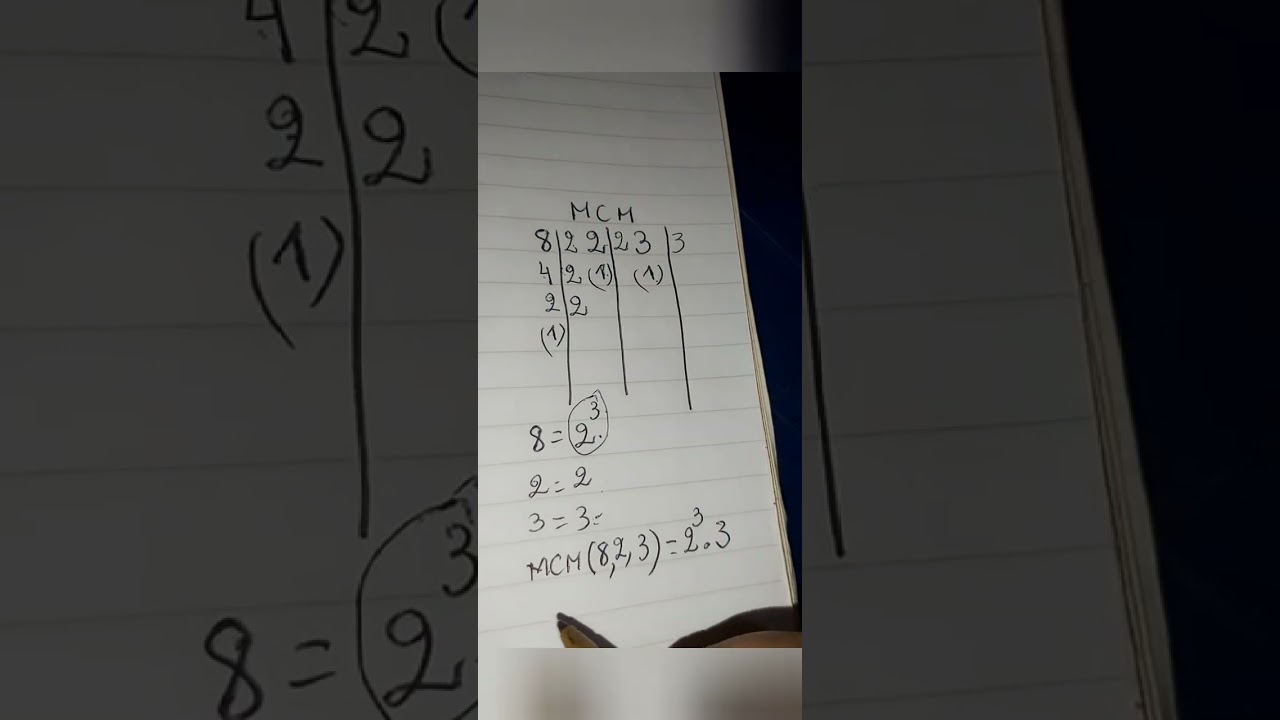 MCM
8|2 2|2 3 |3
4|2 (1) (1)
2|2
(1)
8 = 2.³
2 = 2
3 = 3=
MCM(8,2,3) = 2³.3